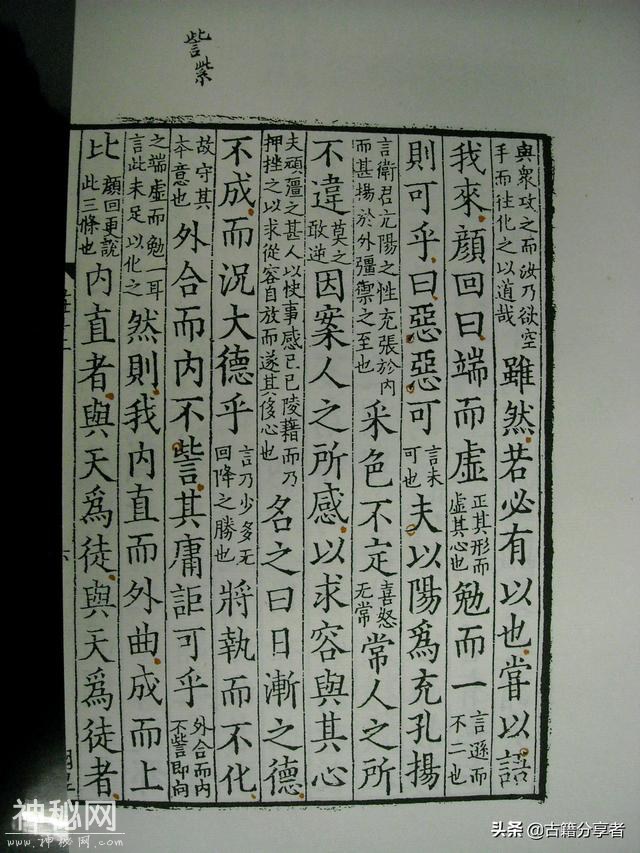 訾紫
與衆攻之而汝乃欲空
手而往化之以道哉
雖然若必有以也嘗以語
我來顏回曰端而虛
正其形而
虛其心也
勉而一
言遜而
不二也
則可乎曰惡惡可
言未
可也
夫以陽爲充孔揚
言衛君亢陽之性充張於內
而甚揚於外彊禦之至也
采色不定
喜怒
无常
常人之所
不違
莫之
敢逆
因案人之所感以求容與其心
夫頑彊之甚人以快事感己己陵藉而乃
押挫之以求從容自放而遂其侈心也
名之曰日漸之德
不成而況大德乎
言乃少多无
回降之勝也
將執而不化
故守其
本意也
外合而內不訾其庸詎可乎
外合而內
不訾即向
之端虛而勉一耳
言此未足以化之
然則我內直而外曲成而上
比
顏回更說
此三條也
內直者與天爲徒與天爲徒者
神秘网
www.神秘网.com
头条 @古籍分享者